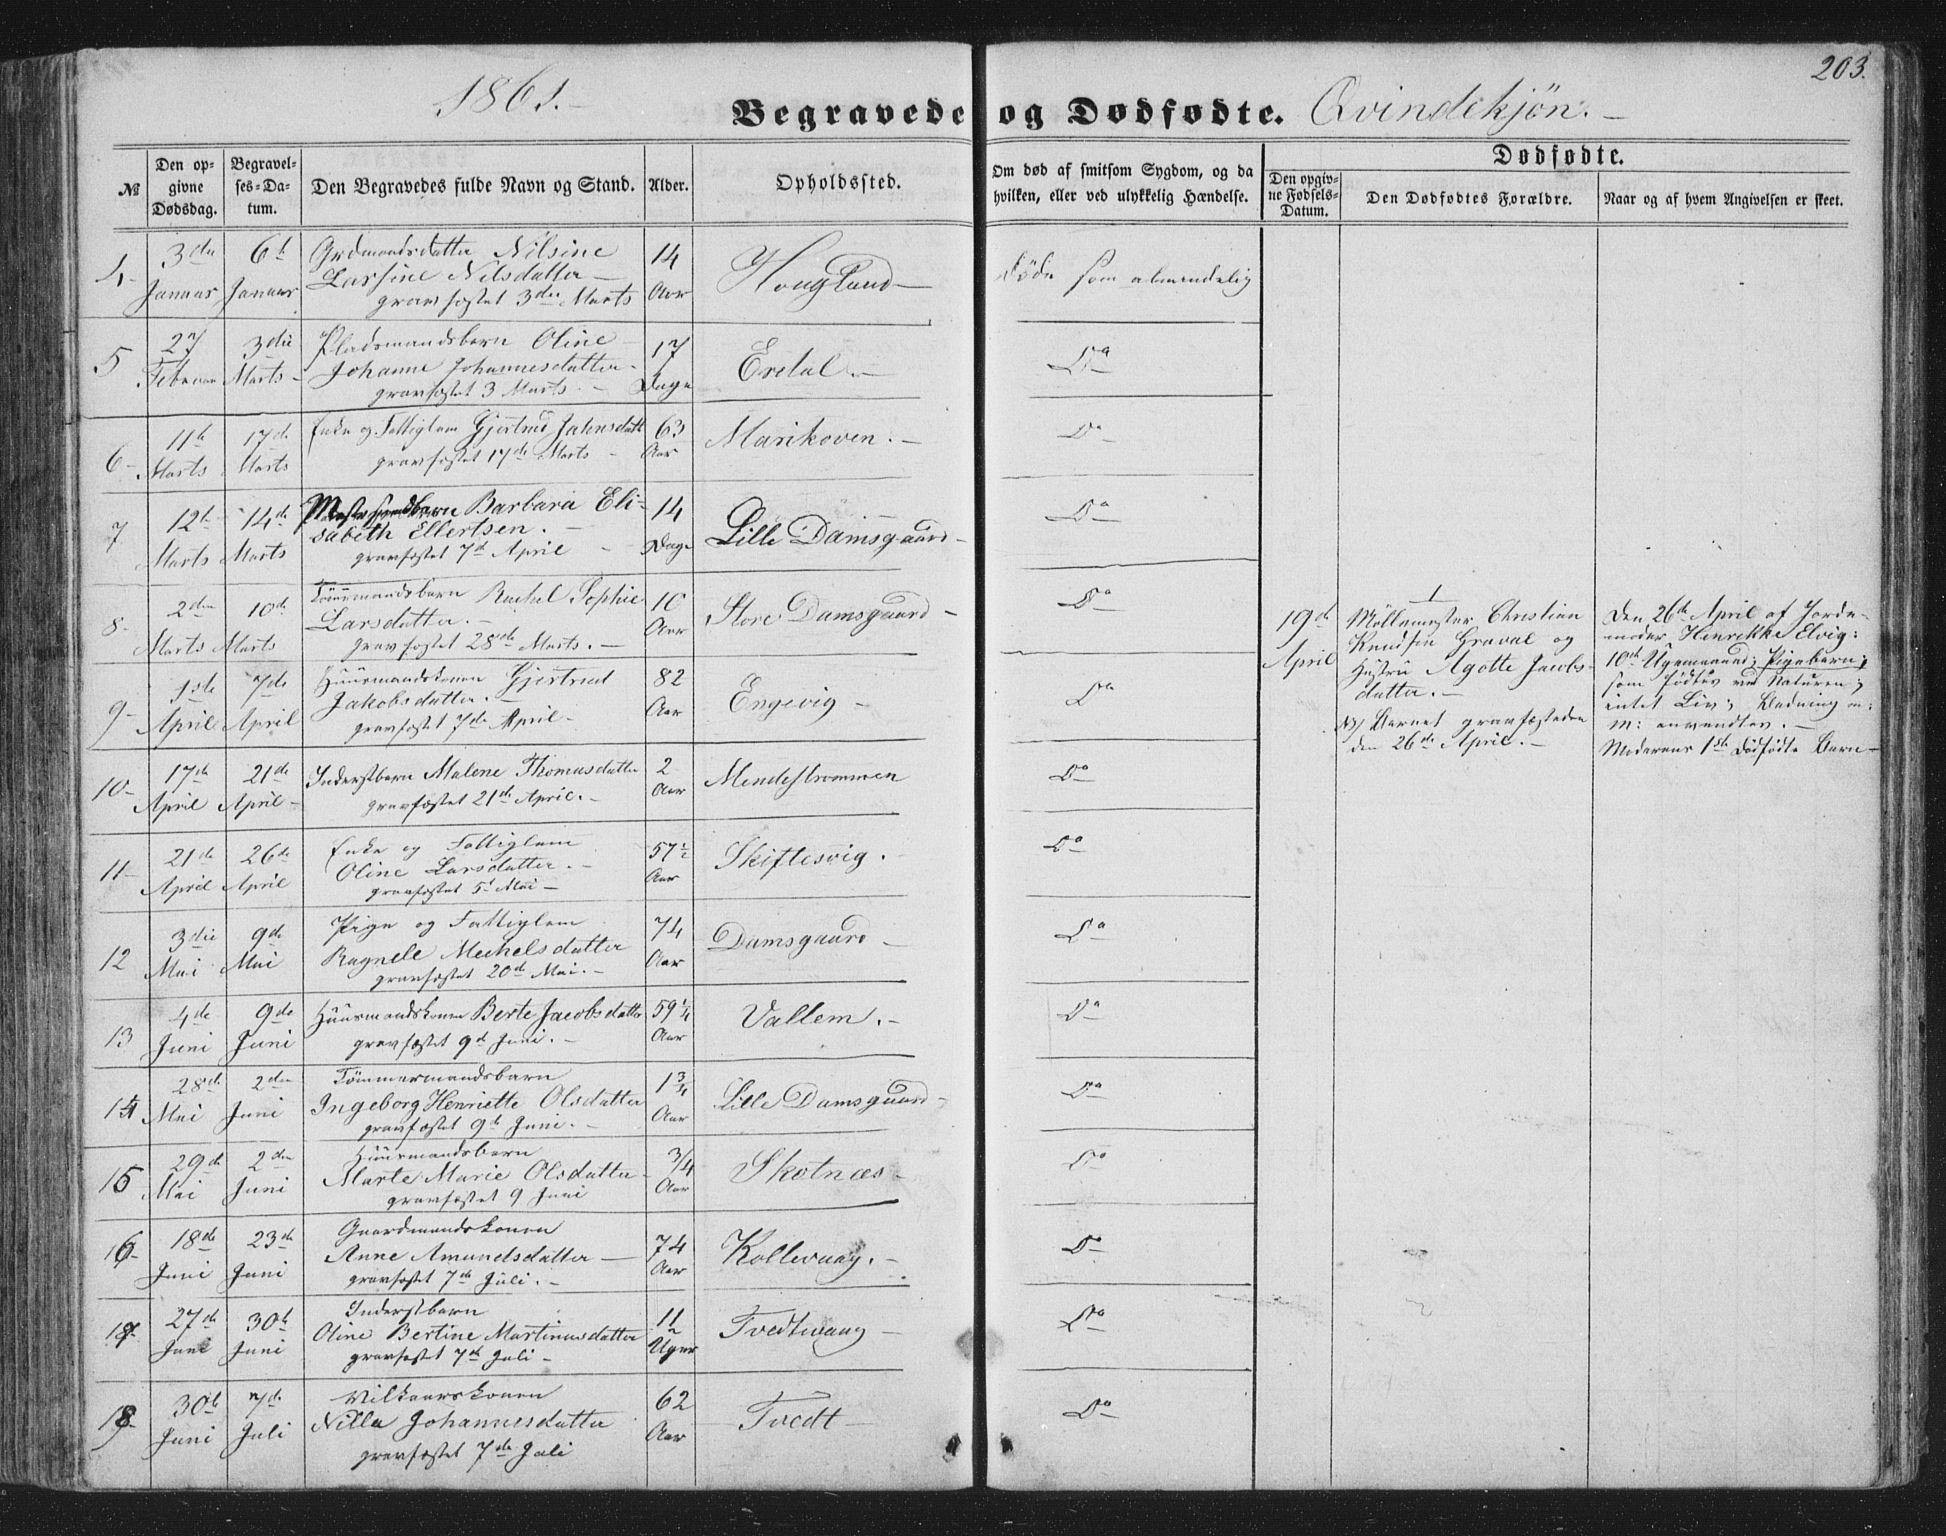 203.
1861.
Begravede og Dødfødte. Qvindekjøn.
№
Den opgivne Dødsdag.
Begravelses-Datum.
Den Begravedes fulde Navn og Stand.
Alder.
Opholdssted.
Om død af smitsom Sygdom, og da hvilken, eller ved ulykkelig Hændelse.
Dødfødte.
Den opgivne Fødsels-Datum.
Den Dødfødtes Forældre.
Naar og af hvem Angivelsen er skeet.
4 3die Januar 6te Januar Grdmandsdatter Nilsine
Larsine Nilsdatter
gravfæstet 3die Marts
14 Aar Hougland Døde som almindelig
5 27 Februar 3die Marts Pladsmandsbarn Oline
Johanne Johannesdatter
gravfæstet 3 Marts
17 Dage Erdal Do
6 11te Marts 17de Marts Enke og Fattiglem Gjertrud Jahnsdatt
gravfæstet 17de Marts
63 Aar Marikoven Do
7 12te Marts 14de Marts Barbara Eli-
sabeth Ellertsen.
gravfæstet 7de April
14 Dage Lille Damsgaard Do
8 2den Marts 10de Marts Tømmermandsbarn Rachel Sophie
Larsdatter.
gravfæstet 28de Marts.
10 Aar Store Damsgaard Do
9 1ste April 7de April Huusmandskonen Gjertrud
Jakobsdatter.
gravfæstet 7de April
82 Aar Engevig Do
10 17de April 21de April Inderstbarn Malene Thomasdatter
gravfæstet 21de April.
2 Aar Mendestrømmen Do
11 21de April 26de April Enke og Fattiglem
Oline Larsdatter.
gravfæstet 5te Mai
57½ Aar Skiftesvig. Do
12 3die Mai 9de Mai Pige og Fattiglem
Ragnele Mechelsdatter
gravfæstet 20de Mai.
74 Aar Damsgaard Do
13 4de Juni 9de Juni Huusmandskonen Berte Jacobsdatter
gravfæstet 9de Juni.
59¼ Aar Vallem. Do
14 28de Mai 2den Juni Tømmermandsbarn
Ingeborg Henriette Olsdatter
gravfæstet 9de Juni.
1¾ Aar Lille Damsgaard Do
15 29de Mai 2den Juni Huusmandsbarn
Marte Marie Olsdatter
gravfæstet 9 Juni
3/4 Aar Skotnæs Do
16 18de Juni 23de Juni Gaardmandskonen
Anne Amundsdatter
gravfæstet 7de Juli.
74 Aar Kollevaag. Do
17 27de Juni 30te Juni Inderstbarn
Oline Bertine Martinusdatter
gravfæstet 7de Juli
11 Uger Tvedtevaag Do
18 30te Juni 7de Juli Vilkaarskonen
Nilla Johannesdatter
gravfæstet 7de Juli
62 Aar Tvedt Do
1
19de April
Möllemester Christian
Knudsen Gravdal og
Hustru Agotte Jacobs-
datter.
NB Barnet gravfæstedes
den 26de April.
Den 26de April af Jorde-
moder Henrikke Elvig:
10de Ugemaaned; Pigebarn;
som fødtes ved Naturen;
intet Liv; Badning m:
m: anvendtes.
Moderens 1ste Dødfødte Barn